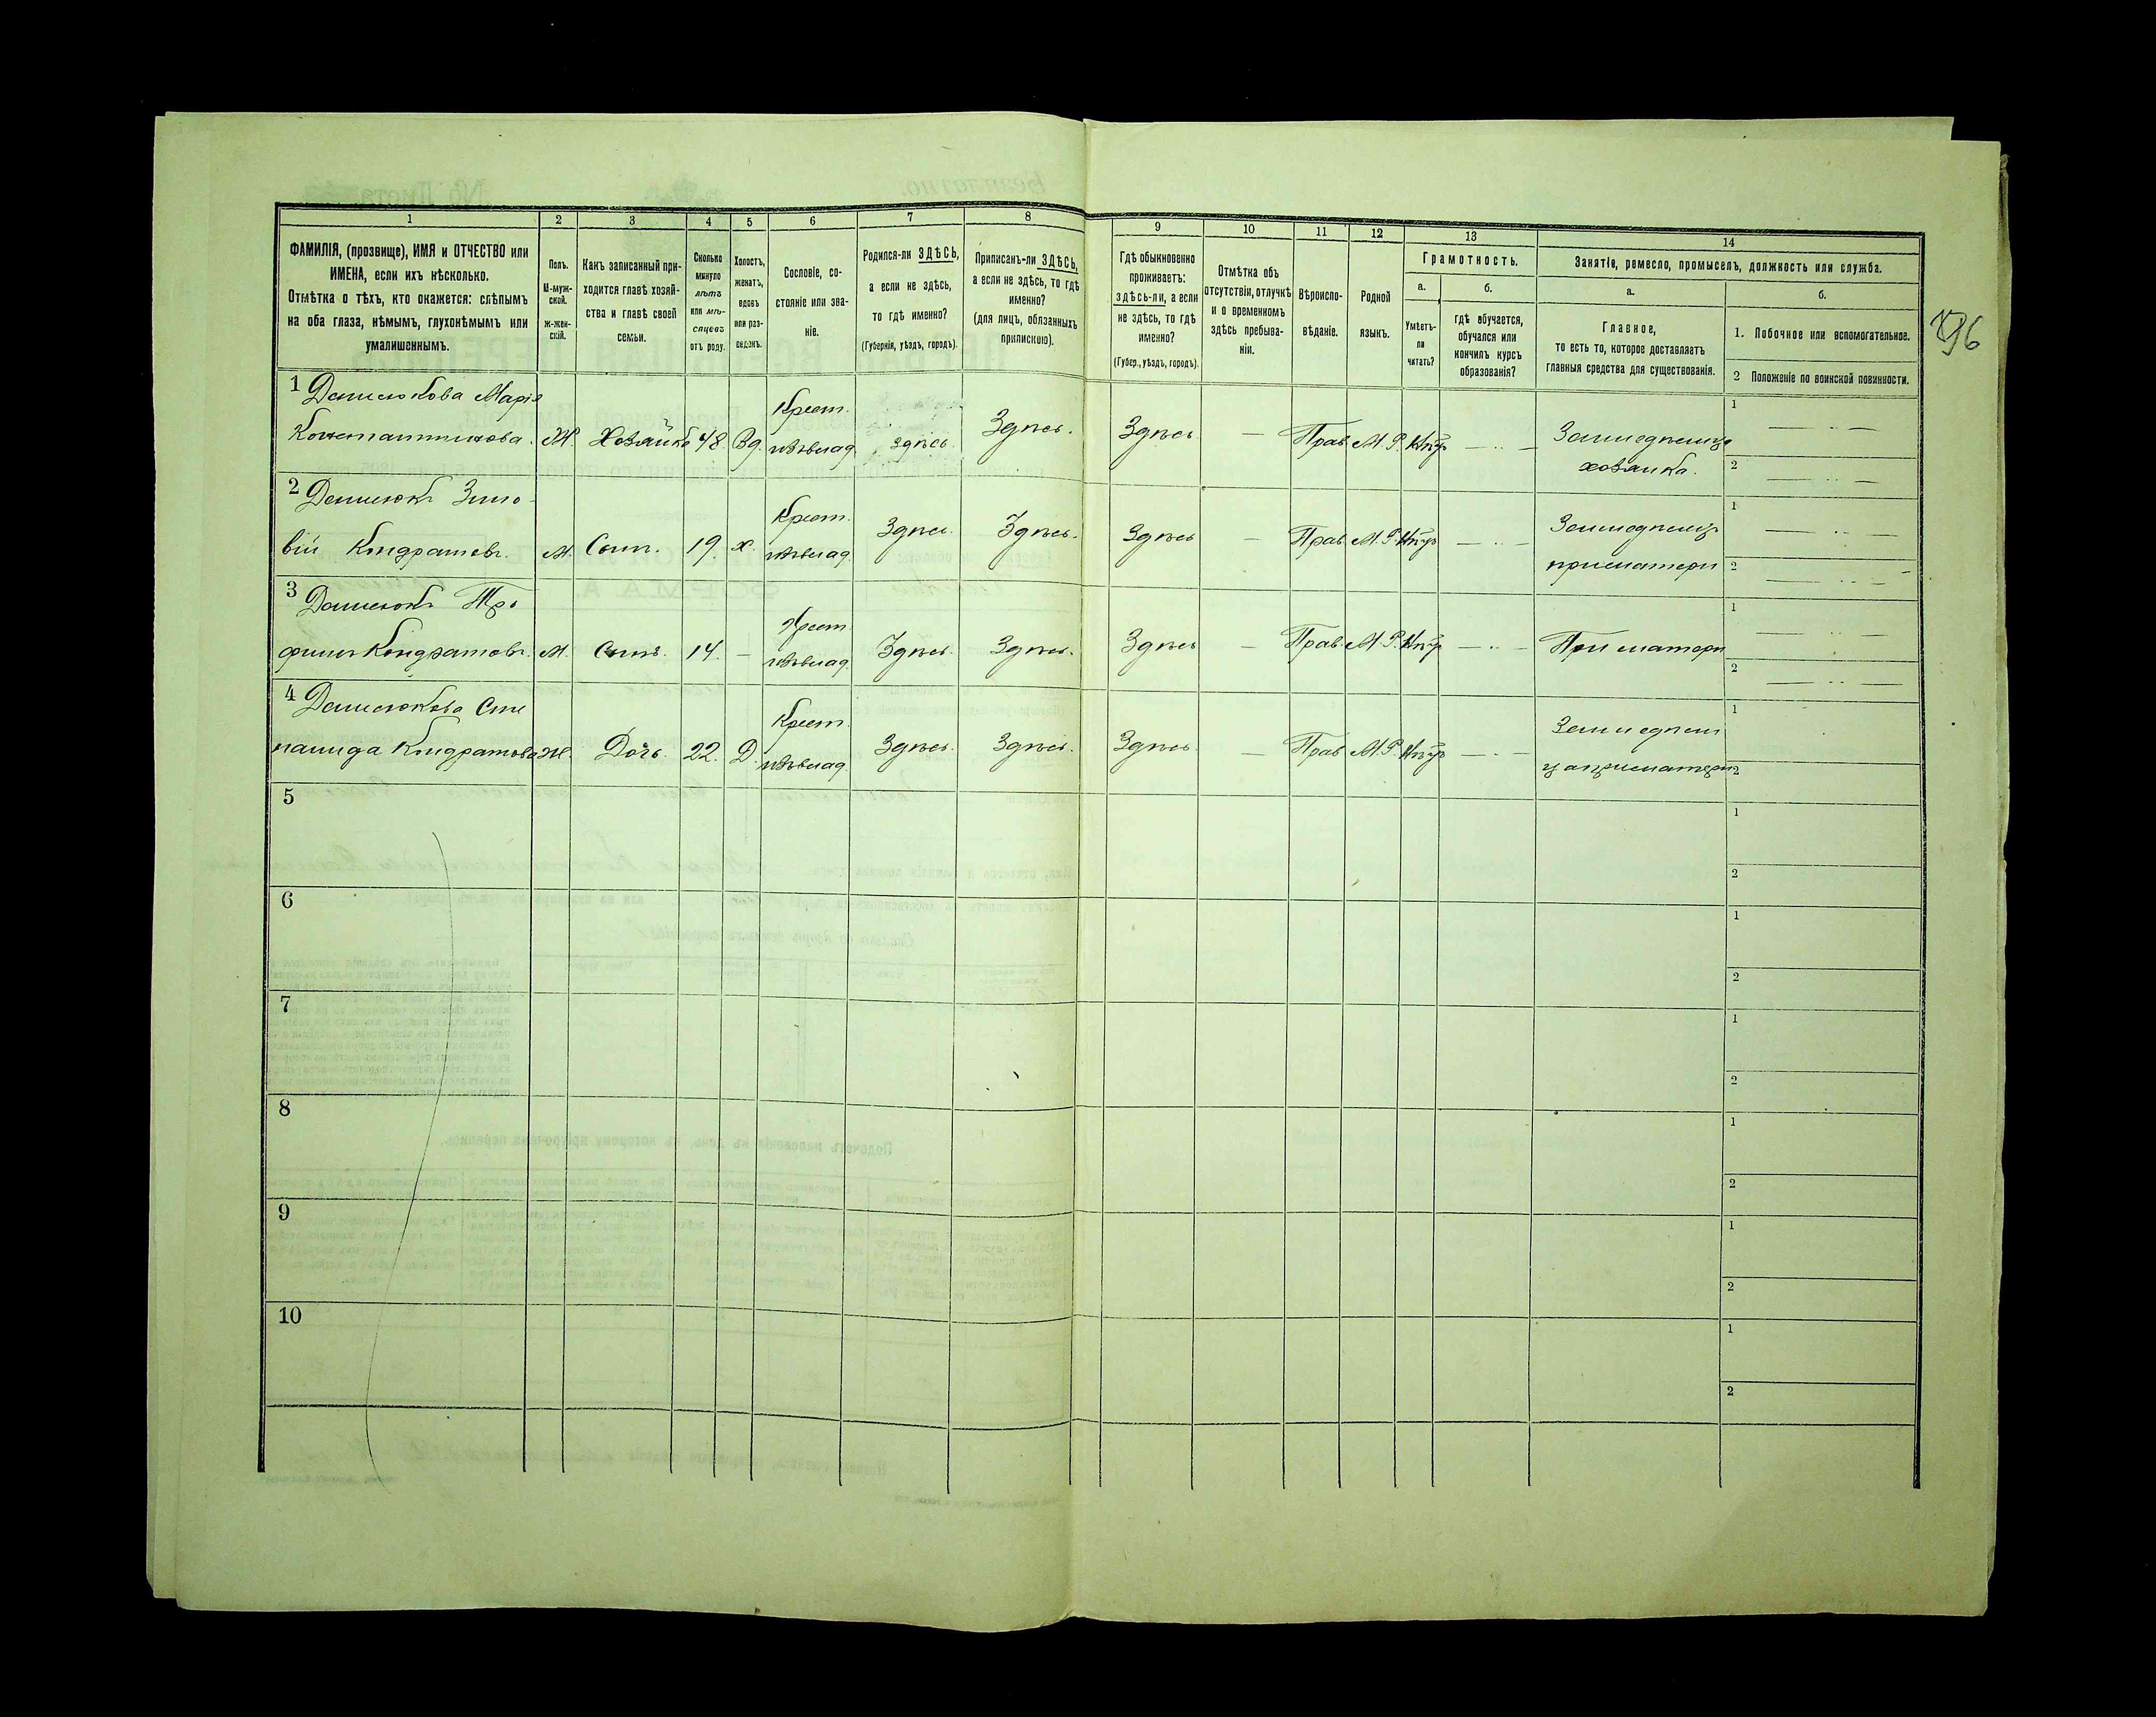 1 2 3 4 5 6 7 8 9 10 11 12 13 14
ФАМИЛІЯ, (прозвище), ИМЯ и ОТЧЕСТВО или
ИМЕНА, если ихъ нѣсколько.
Отмѣтка о тѣхъ, кто окажется: слѣпымъ
на оба глаза, нѣмымъ, глухонѣмымъ или
умалишеннымъ.
Полъ.
М-муж-
ской.
Ж-жен-
скій.
Какъ записанный при-
ходится главѣ хозяй-
ства и главѣ своей
семьи.
Сколько
минуло
лѣтъ
или мѣ-
сяцевъ
отъ роду.
Холостъ,
женатъ,
вдовъ
или раз-
веденъ.
Сословіе, со-
стояніе или зва-
ніе.
Родился-ли ЗДѢСЬ,
а если не здѣсь,
то гдѣ именно?
(Губернія, уѣздъ, городъ).
Приписанъ-ли ЗДѢСЬ,
а если не здѣсь, то гдѣ
именно?
(для лицъ, обязанныхъ
припискою).
Гдѣ обыкновенно
проживаетъ:
здѣсь-ли, а если
не здѣсь, то гдѣ
именно?
(Губер., уѣздъ, городъ).
Отмѣтка объ
отсутствіи, отлучкѣ
и о временномъ
здѣсь пребыва-
ніи.
Вѣроиспо-
вѣданіе.
Родной
языкъ.
Грамотность.
а.
Умѣетъ-
ли
читать?
б.
гдѣ обучается,
обучался или
кончилъ курсъ
образованія?
Занятіе, ремесло, промыселъ, должность или служба.
а.
Главное,
то есть то, которое доставляетъ
главныя средства для существованія.
б.
1. Побочное или вспомогательное.
2 Положеніе по воинской повинности.
96
1 Денисюкова Марія
Константинова. Ж. Хозяйка 48. Вд. Крест. Здѣсь. Здѣсь. Здѣсь — Прав. М. Р. — Земледѣлица
хозяйка.
1
2
2 Денисюкъ Зино-
вій Кондратовъ. М. Сынъ. 19. х. Крест. Здѣсь. Здѣсь. Здѣсь — Прав. М. Р. — Земледѣлецъ
при матери
1
2
3 Денисюкъ Тро
фимъ Кондратовъ. М. Сынъ. 14. — Крест. Здѣсь. Здѣсь. Здѣсь — Прав. М. Р. — При матери
1
2
4 Денисюкова Сте
панида Кондратова Ж. Дочь. 22. Д. Крест. Здѣсь. Здѣсь. Здѣсь. — Прав. М. Р. — Земледѣли
ца при матери
1
2
5
1
2
6
1
2
7
1
2
8
1
2
9
1
2
10
1
2